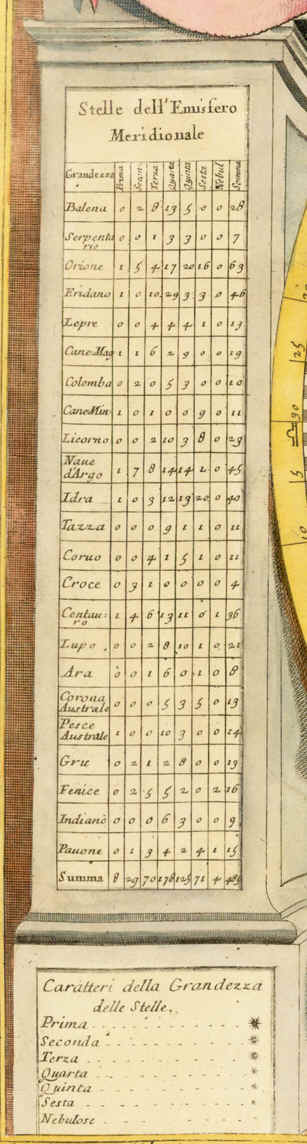 Stelle dell'Emisfero
Meridionale
Grandezza Prima Secun. Terza Quarta Quinta Sesta Nebul Somma
Balena 0 2 8 13 5 0 0 28
Serpentario 0 0 1 3 3 0 0 7
Orione 1 5 4 17 20 16 0 63
Eridano 1 0 10 29 3 3 0 46
Lepre 0 0 4 4 4 1 0 13
Cane Mag 1 1 6 2 9 0 0 19
Colomba 0 2 0 5 3 0 0 10
Cane Min 1 0 1 0 0 9 0 11
Licorno 0 0 2 10 3 8 0 29
Naue d'Argo 1 7 8 14 14 1 0 45
Idra 1 0 3 12 13 20 0 40
Tazza 0 0 0 9 1 1 0 11
Coruo 0 0 4 1 5 1 0 11
Croce 0 3 1 0 0 0 0 4
Centauro 1 4 6 13 11 0 1 36
Lupo 0 0 2 8 10 1 0 21
Ara 0 0 1 6 0 1 0 8
Corona Australe 0 0 0 5 3 5 0 13
Pesce Australe 1 0 0 10 3 0 0 14
Gru 0 2 1 2 8 0 0 13
Fenice 0 2 5 5 2 0 2 16
Indiano 0 0 0 6 3 0 0 9
Pauone 0 1 3 4 2 4 1 15
Summa 8 29 70 178 125 71 4
Caratteri della Grandezza
delle Stelle.
Prima
Seconda
Terza
Quarta
Quinta
Sesta
Nebulose
25
30
15
10